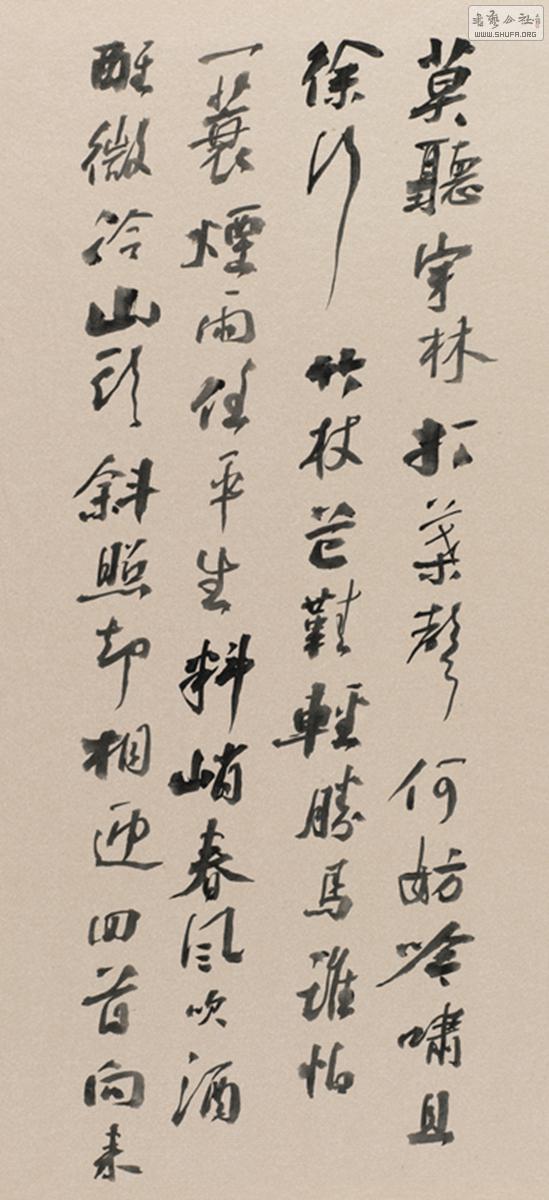 莫聽穿林打葉聲何妨吟嘯且
徐行竹杖芒鞋輕勝馬誰怕
一蓑煙雨任平生料峭春風吹酒
醒微冷山頭斜照却相迎回首向來
書藝公社
WWW.SHUFA.ORG